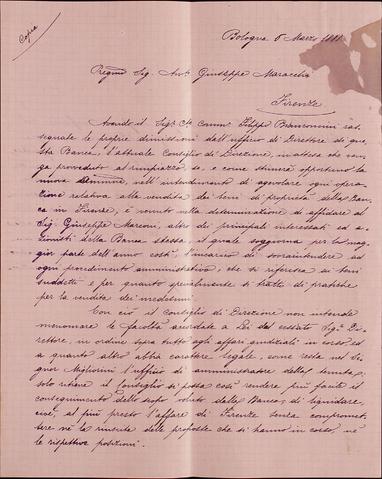 Copia
Bologna 6 Marzo 1881
Pregmo Sig. Avv. Giuseppe Maracchi
Firenze
Avendo il Sigr. Cte. Comm. Filippo Bianconcini ras-
segnate le proprie dimissioni dall'ufficio di Direttore di que-
sta Banca, l'attuale Consiglio di Direzione, in attesa che ven-
ga proveduto al rimpiazzo, se, e come stimerà opportuno la
nuova, nell'intendimento di agevolare ogni opera-
zione relativa alla vendita dei beni di proprietà della Ban-
ca in Firenze, è venuto nella determinazione di affidare al
Sig. Giuseppe Marconi, altro dei principali interessati ed a-
zionisti della Banca stessa, il quale soggiorna per la mag-
gior parte dell'anno costì l'incarico di soraintendere ad
ogni procedimento amministrativo, che si riferisca ai beni
suddetti e per quanto specialmente si tratti di pratiche
per la vendita dei medesimi.
Con ciò il Consiglio di Direzione non intende
menomare le facoltà accordate a Lei dal cessato Sigr. Di-
rettore, in ordine sopra tutto agli affari giudiziali in corso ed
a quanto altro abbia carattere legale, come resta nel Si-
gnor Migliorini l'ufficio di amministratore della tenuta,
solo ritiene il Consiglio si possa così rendere più facile il
conseguimento dello scopo voluto dalla Banca di liquidare,
cioè, al più presto l'affare di Firenze senza compromet-
tere nè la riuscita delle proposte che si hanno in corso, nè
le rispettive posizioni.